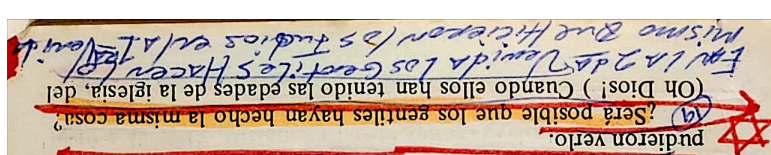 pudieron verlo.
¿Será posible que los gentiles hayan hecho la misma cosa?
(Oh Dios!) Cuando ellos han tenido las edades de la iglesia, del
En la 2da Venida los Gentiles Hacen lo
mismo que Hicieron los Judios en la 1ra Venida